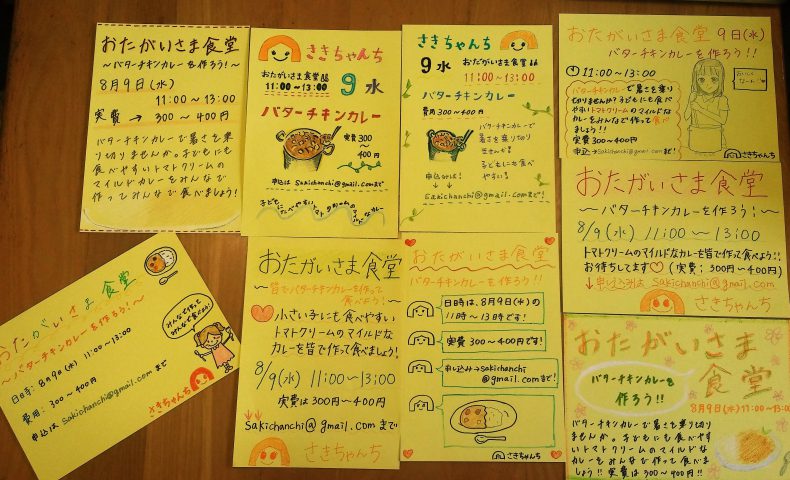 おたがいさま食堂
～バターチキンカレーを作ろう！～
8月9日(水)
11:00～13:00
実費 → 300～400円
バターチキンカレーで暑さを乗
り切りませんか。子どもにも
食べやすいトマトクリームの
マイルドカレーをみんなで
作ってみんなで食べましょう！
さきちゃんち
おたがいさま食堂
11:00～13:00
9水
バターチキンカレー
実費300
～400円
申込は Sakichanchi@gmail.comまで
子どもに
食べやすいトマトクリームの
マイルドなカレー
さきちゃんち
9水
おたがいさま食堂
11:00～13:00
バターチキンカレー
費用300～400円
バターチキンカレーで
暑さを乗り切り
ませんか！
子どもにも食べ
やすい！
申込みは！
↓ ↓
Sakichanchi@gmail.comまで！
おたがいさま食堂 9日(水)
バターチキンカレーを作ろう！！
11:00～13:00
バターチキンカレーで暑さを乗り
切りませんか？子どもにも食べ
やすいトマトクリームのマイルドな
カレーをみんなで作って食べま
しょう！！
実費300～400円
申込→Sakichanchi@gmail.comまで
さきちゃんち
おたがいさま食堂
～バターチキンカレーを作ろう！～
8/9(水) 11:00～13:00
トマトクリームのマイルドなカレーを皆で作って食べよう！！
お待ちしてます♡(実費：300円～400円)
↓申し込みは Sakichanchi@gmail.com
さきちゃんち
おたがいさま食堂
～バターチキンカレーを作ろう！～
みんなで作って
みんなで食べよう！
日時：8月9日(水) 11:00～13:00
費用：300～400円
申込は Sakichanchi@gmail.comまで
さきちゃんち
おたがいさま食堂
～皆でバターチキンカレーを作って
食べよう！～
小さい子にも食べやすい
トマトクリームのマイルドな
カレーを皆で作って食べましょう！
8/9(水) 11:00～13:00
実費は300円～400円
↓↓
Sakichanchi@gmail.comまで
さきちゃんち
おたがいさま食堂
バターチキンカレーを作ろう！！
日時は、8月9日(水)の
11時～13時です！
実費 300～400円です！
申し込み→Sakichanchi
@gmail.comまで！
さきちゃんち
おたがいさま
食堂
バターチキンカレーを
作ろう！！
8月9日(水)11:00～13:00
バターチキンカレーで暑さを乗り切り
ませんか。子どもにも食べやす
いトマトクリームのマイルドな
カレーをみんなで作って食べま
しょう！！実費は300～400円！！